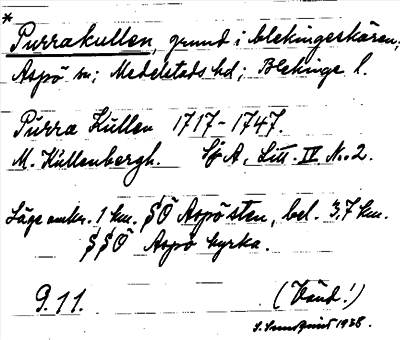 * Purrakullen, grund i blekingeskären;
Aspö sn; Medelstads hd; Blekinge l.
Purra Kullen 1717-1747.
M. Kullenbergh. Sf A, Litt. IV No. 2.
Läge omkr. 1 km. SÖ Aspösten, bel. 3,7 km.
SSÖ Aspö kyrka.
9.11. (Vänd!)
S. Sundquist 1938.